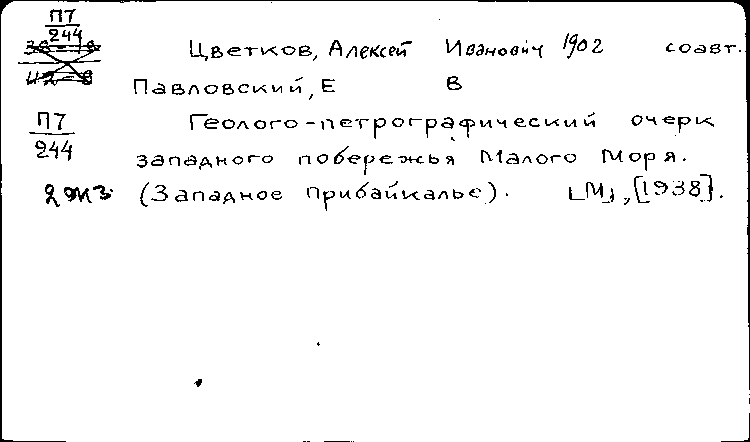 П7
244
Цветков, Алексей Иванович 1902 соавт.
Павловский, Е В
П7
244
Геолого-петрографический очерк
западного побережья Малого Моря.
2 экз. (Западное Прибайкалье). [М], [1938].